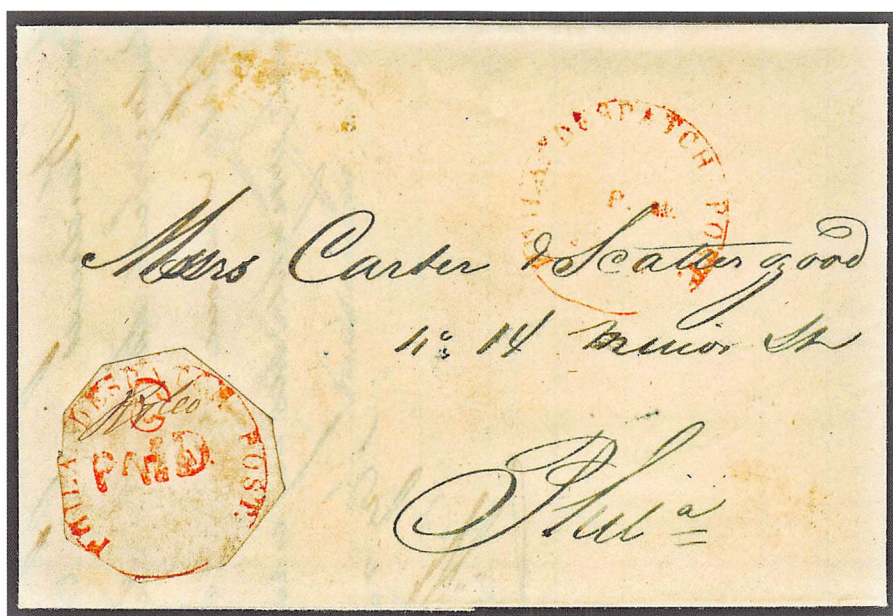 PHILA. DESPATCH POST.
P. M.
Messrs Carter & Scattergood
No 14 Minor St
Phila
PHILA DESPATCH POST.
PAID